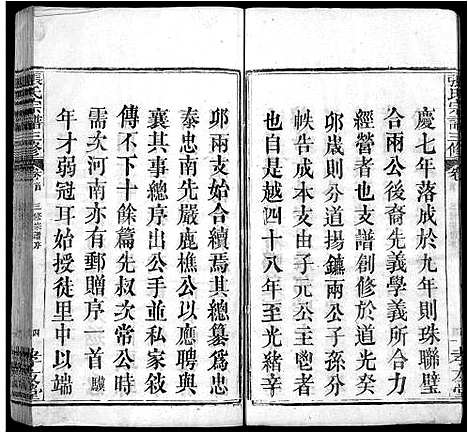 慶七年落成於九年則珠聯璧
合兩公後裔先義學義渡所
經營者也支譜創修於道光癸
邜歲則子道揚鑣兩公子孫分
帙告成本支由子元公主鬯者
也自是越四十八年至光緒辛
邜兩支始合續焉其總纂爲忠
泰忠南先嚴鹿樵公以應聘與
襄其事總序出公手並私家敘
傳不下十餘篇先叔次常公時
需次河南亦有郵贈序一首驥
年才弱冠耳始授徒里中以端
張氏宗譜三修
卷首
三修宗譜序
四
孝友堂
張氏宗譜三修
卷首
孝友堂